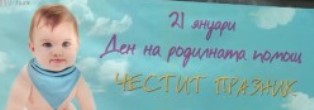 21 януари
Ден на родилната помощ
ЧЕСТИТ ПРАЗНИК